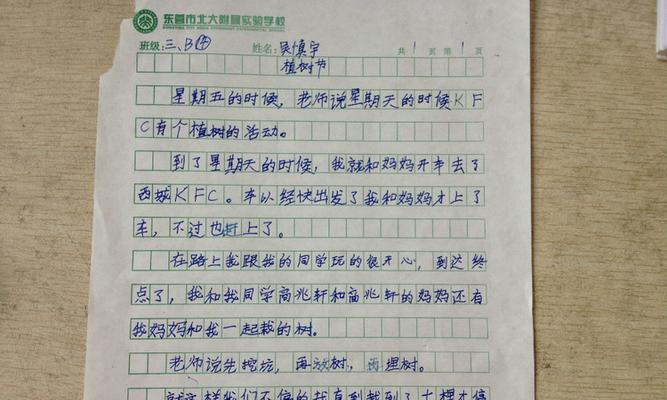 东营市北大附属实验学校
班级:三、B④ 姓名:吴慎宇 共1页第1页
植树节
星期五的时候,老师说星期天的时候KF
C有个植树的活动。
到了星期天的时候,我就和妈妈开车去了
西城KFC。车以经快出发了我和妈妈才上了
车,不过也赶上了。
在路上我跟我的同学玩的很开心,到达终
点了,我和我同学高兆轩和高兆轩的妈妈还有
我妈妈和我一起栽的树。
老师说先挖坑,再放树,再埋树。
就这样我们不停的栽直到栽到了十棵才停